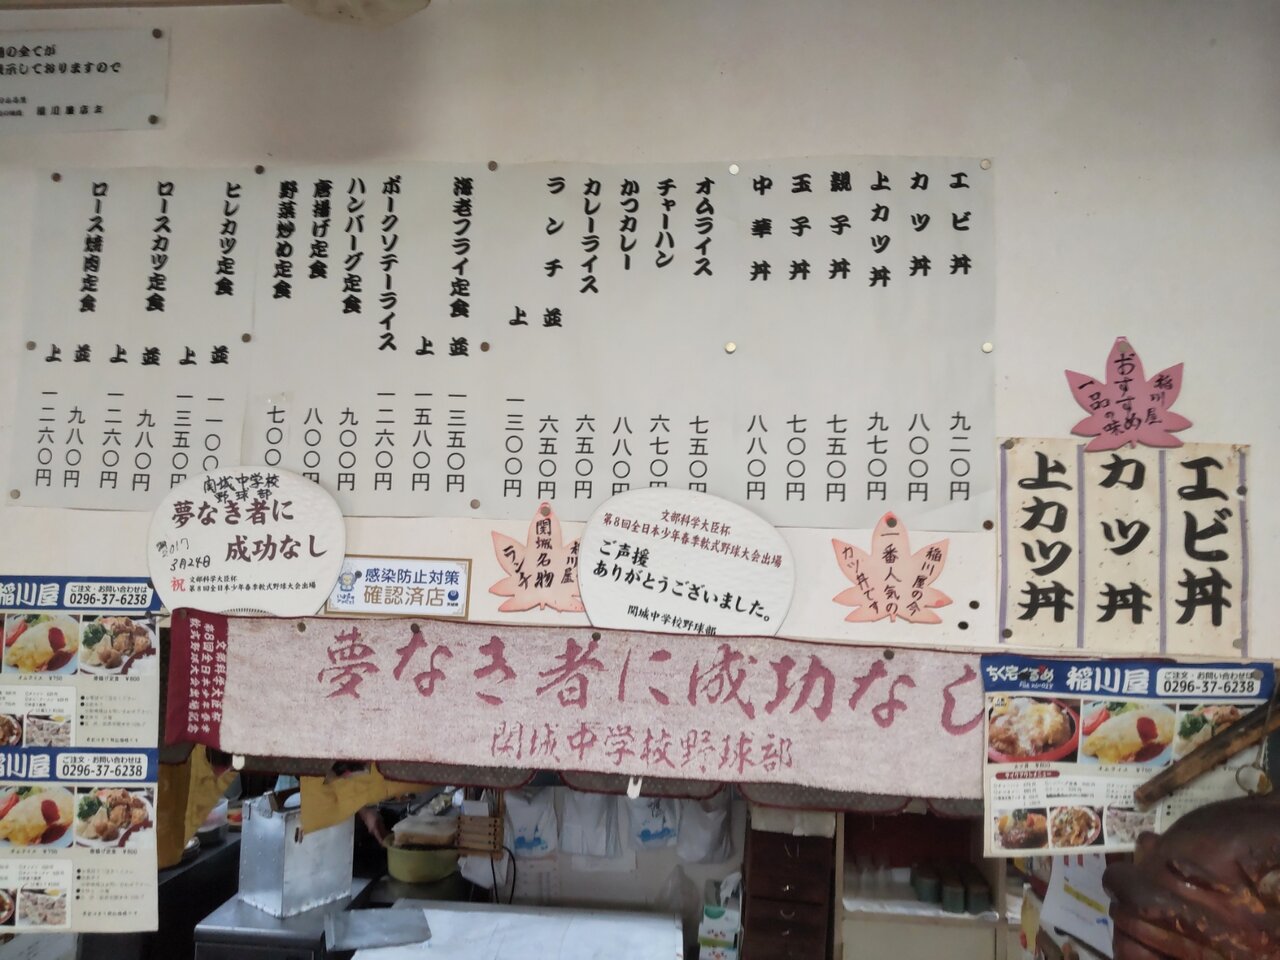 エビ丼 九二〇円
カツ丼 八〇〇円
上カツ丼 九七〇円
親子丼 七五〇円
玉子丼 七〇〇円
中華丼 八八〇円
オムライス 七五〇円
チャーハン 六七〇円
かつカレー 八八〇円
カレーライス 六五〇円
ランチ 並 六五〇円
上 一三〇〇円
海老フライ定食 並 一三五〇円
上 一五八〇円
ポークソテーライス 一二六〇円
ハンバーグ定食 九〇〇円
唐揚げ定食 八〇〇円
野菜炒め定食 七〇〇
ヒレカツ定食 並 一一〇〇
上 一三五〇円
ロースカツ定食 並 九八〇円
上 一二六〇円
ロース焼肉定食 並 九八〇円
上 一二六〇円
稲川屋
おすすめ
一品の味
エビ丼
カツ丼
上カツ丼
稲川屋の今
一番人気の
カツ丼です
関城名物
ランチ
関城中学校
野球部
夢なき者に
成功なし
2017
3月24日
祝
文部科学大臣杯
第8回全日本少年春季軟式野球大会出場
感染防止対策
確認済店
文部科学大臣杯
第8回全日本少年春季軟式野球大会出場
ご声援
ありがとうございました。
関城中学校野球部
文部科学大臣杯
第8回全日本少年春季
軟式野球大会出場記念
夢なき者に成功なし
関城中学校野球部
ちく宅ぐるめ
稲川屋
ご注文・お問い合わせは
0296-37-6238
カツ丼 ¥800
オムライス ¥750
テイクアウトメニュー
稲川屋
ご注文・お問い合わせは
0296-37-6238
オムライス ¥750
唐揚げ定食 ¥800
稲川屋
ご注文・お問い合わせは
0296-37-6238
オムライス ¥750
唐揚げ定食 ¥800
の全てが
示しておりますので
稲川屋店主